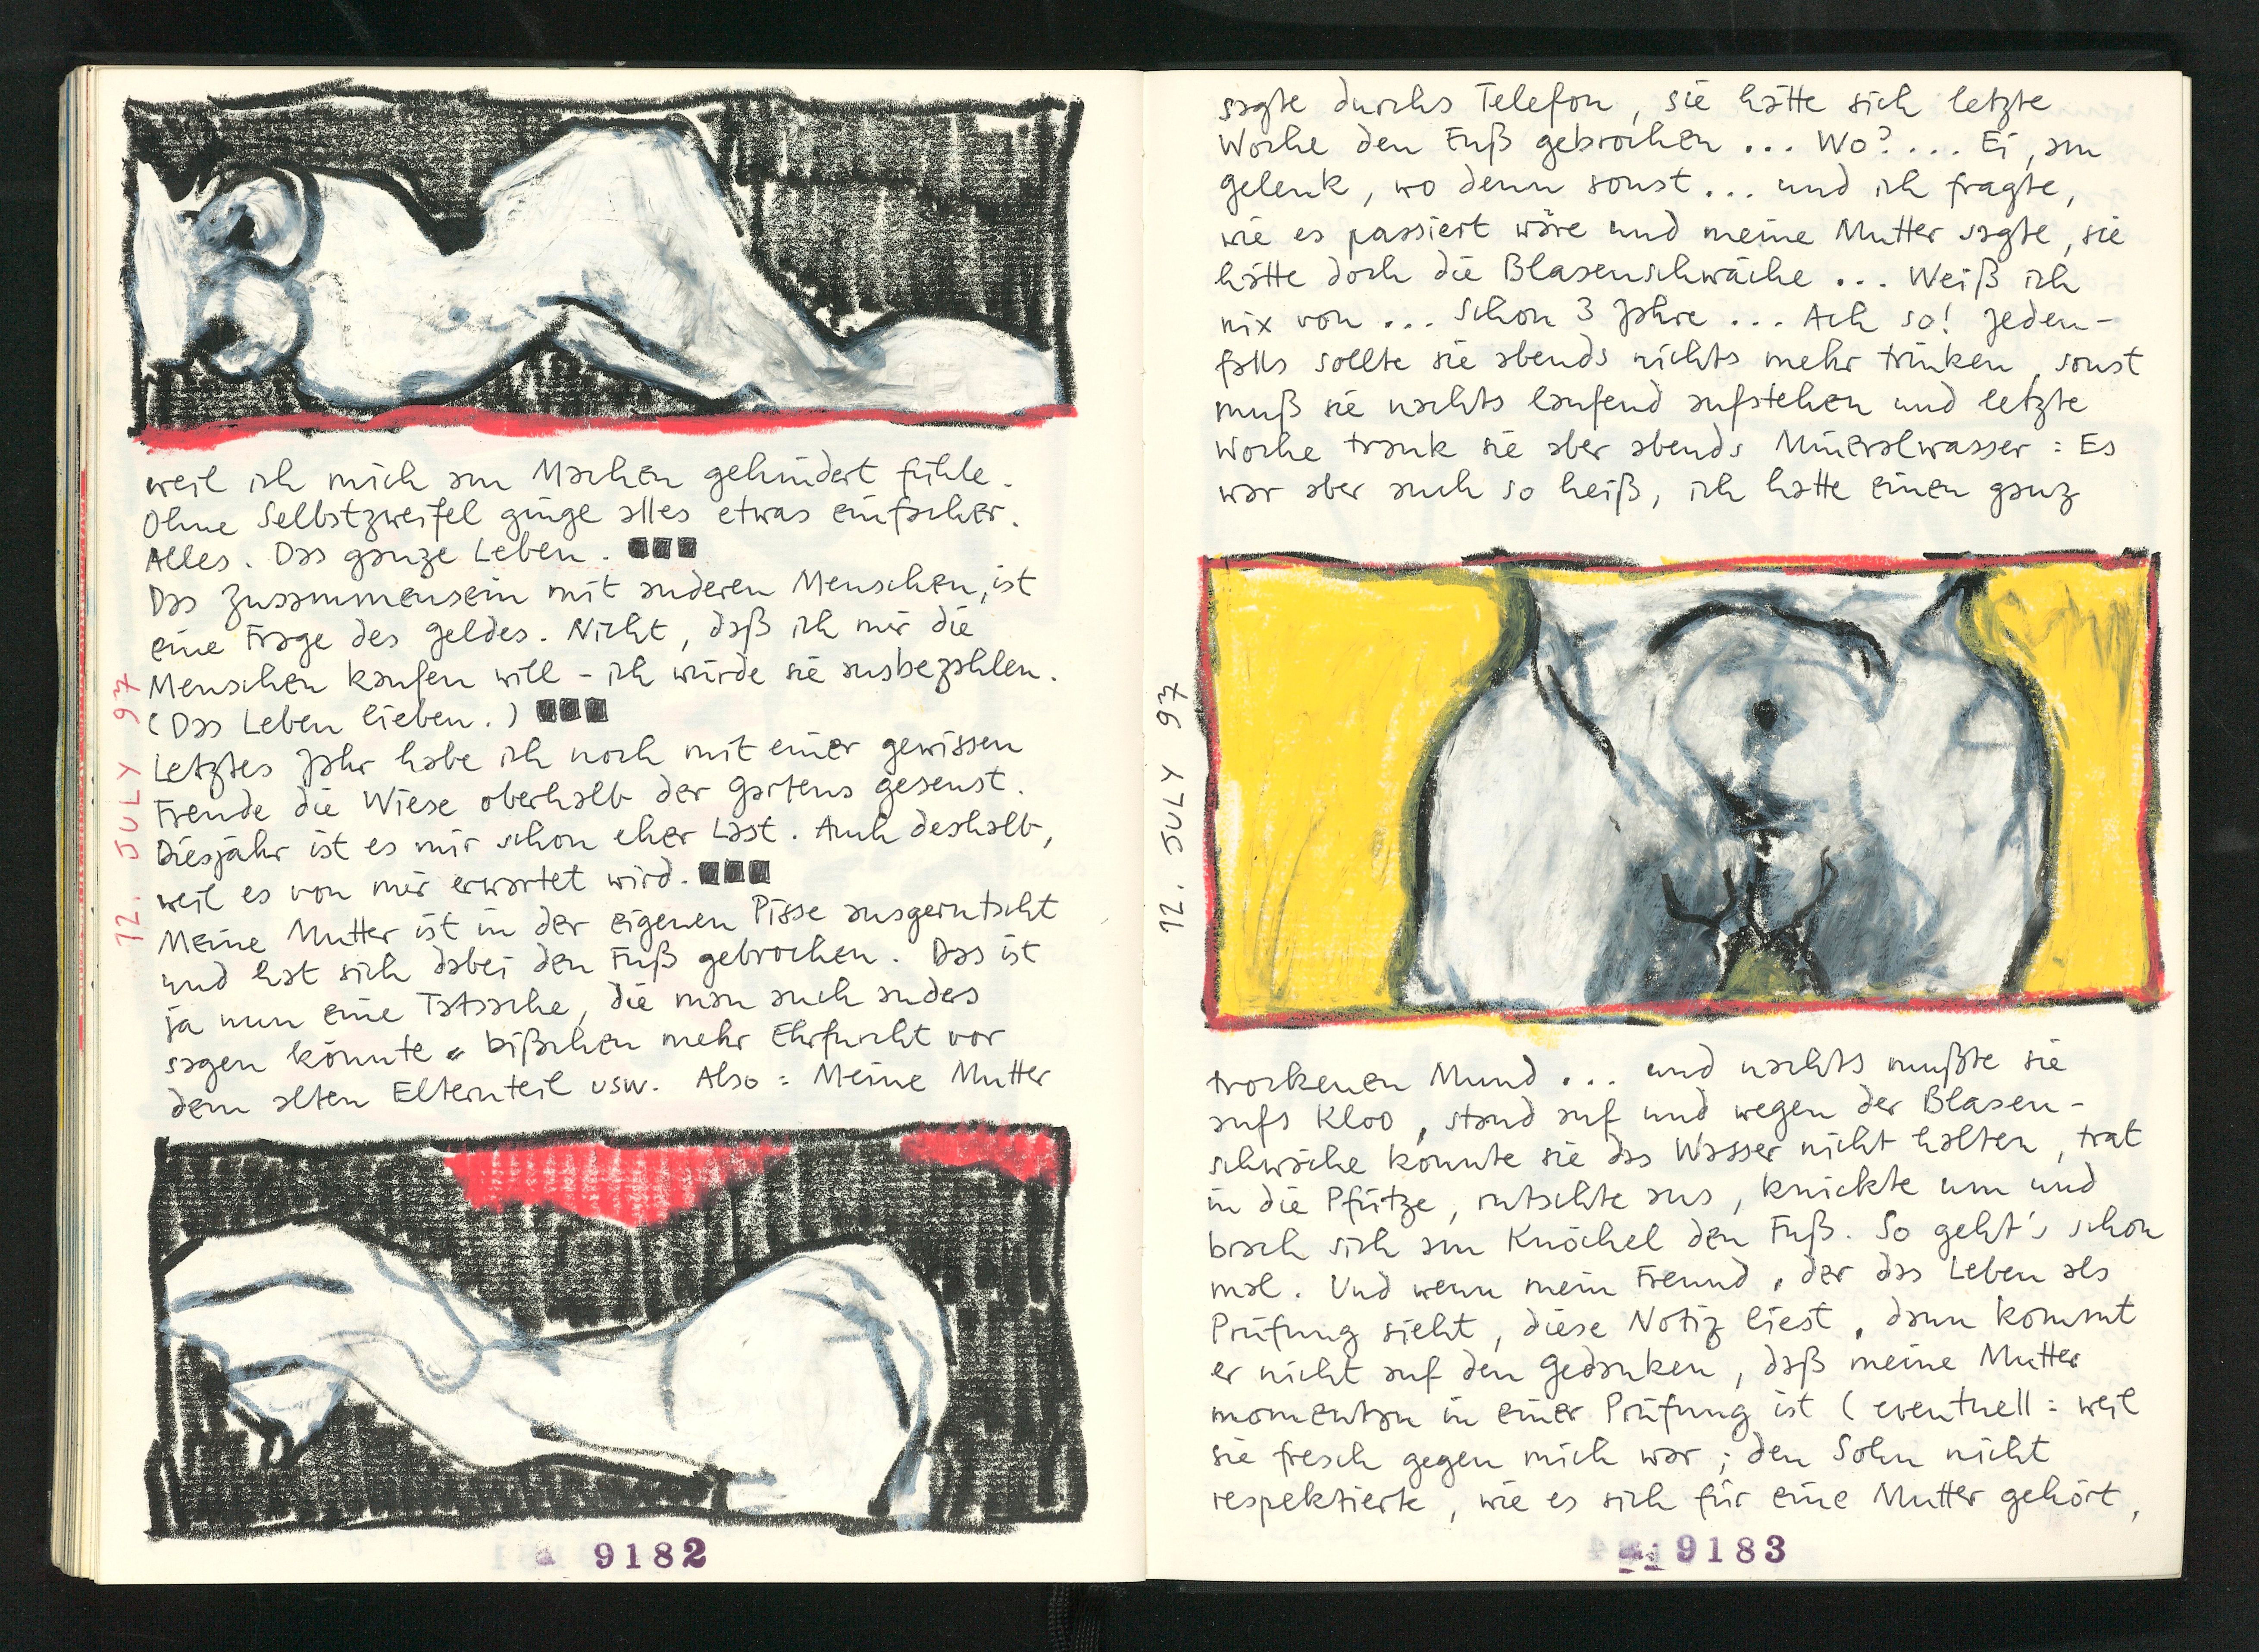 weil ich mich am Machen gehindert fühle.
Ohne Selbstzweifel ginge alles etwas einfacher.
Alles. Das ganze Leben. ■■■
Das Zusammensein mit anderen Menschen, ist
eine Frage des Geldes. Nicht, daß ich mir die
Menschen kaufen will - ich würde sie ausbezahlen.
(Das Leben lieben.) ■■■
Letztes Jahr habe ich noch mit einer gewissen
Freude die Wiese oberhalb der Gartens gesenst.
Diesjahr ist es mir schon eher Last. Auch deshalb,
weil es von mir erwartet wird. ■■■
Meine Mutter ist in der eigenen Pisse ausgerutscht
und hat sich dabei den Fuß gebrochen. Das ist
ja nun eine Tatsache, die man auch anders
sagen könnte. bißchen mehr Ehrfurcht vor
dem alten Elternteil usw. Also: Meine Mutter
12. JULY 97
9182
sagte durchs Telefon, sie hätte sich letzte
Woche den Fuß gebrochen ... Wo? ... Ei, am
gelenk, wo denn sonst ... und ich fragte,
wie es passiert wäre und meine Mutter sagte, sie
hätte doch die Blasenschwäche ... Weiß ich
nix von ... Schon 3 Jahre ... Ach so! Jeden-
falls sollte sie abends nichts mehr trinken, sonst
muß sie nachts laufend aufstehen und letzte
Woche trank sie aber abends Mineralwasser: Es
war aber auch so heiß, ich hatte einen ganz
12. JULY 97
trockenen Mund ... und nachts mußte sie
aufs Kloo, stand auf und wegen der Blasen-
schwäche konnte sie das Wasser nicht halten, trat
in die Pfütze, rutschte aus, knickte um und
brach sich am Knöchel den Fuß. So geht's schon
mal. Und wenn mein Freund, der das Leben als
Prüfung sieht, diese Notiz liest, dann kommt
er nicht auf den Gedanken, daß meine Mutter
momentan in einer Prüfung ist (eventuell: weil
sie frech gegen mich war; den Sohn nicht
respektierte, wie es sich für eine Mutter gehört,
9183